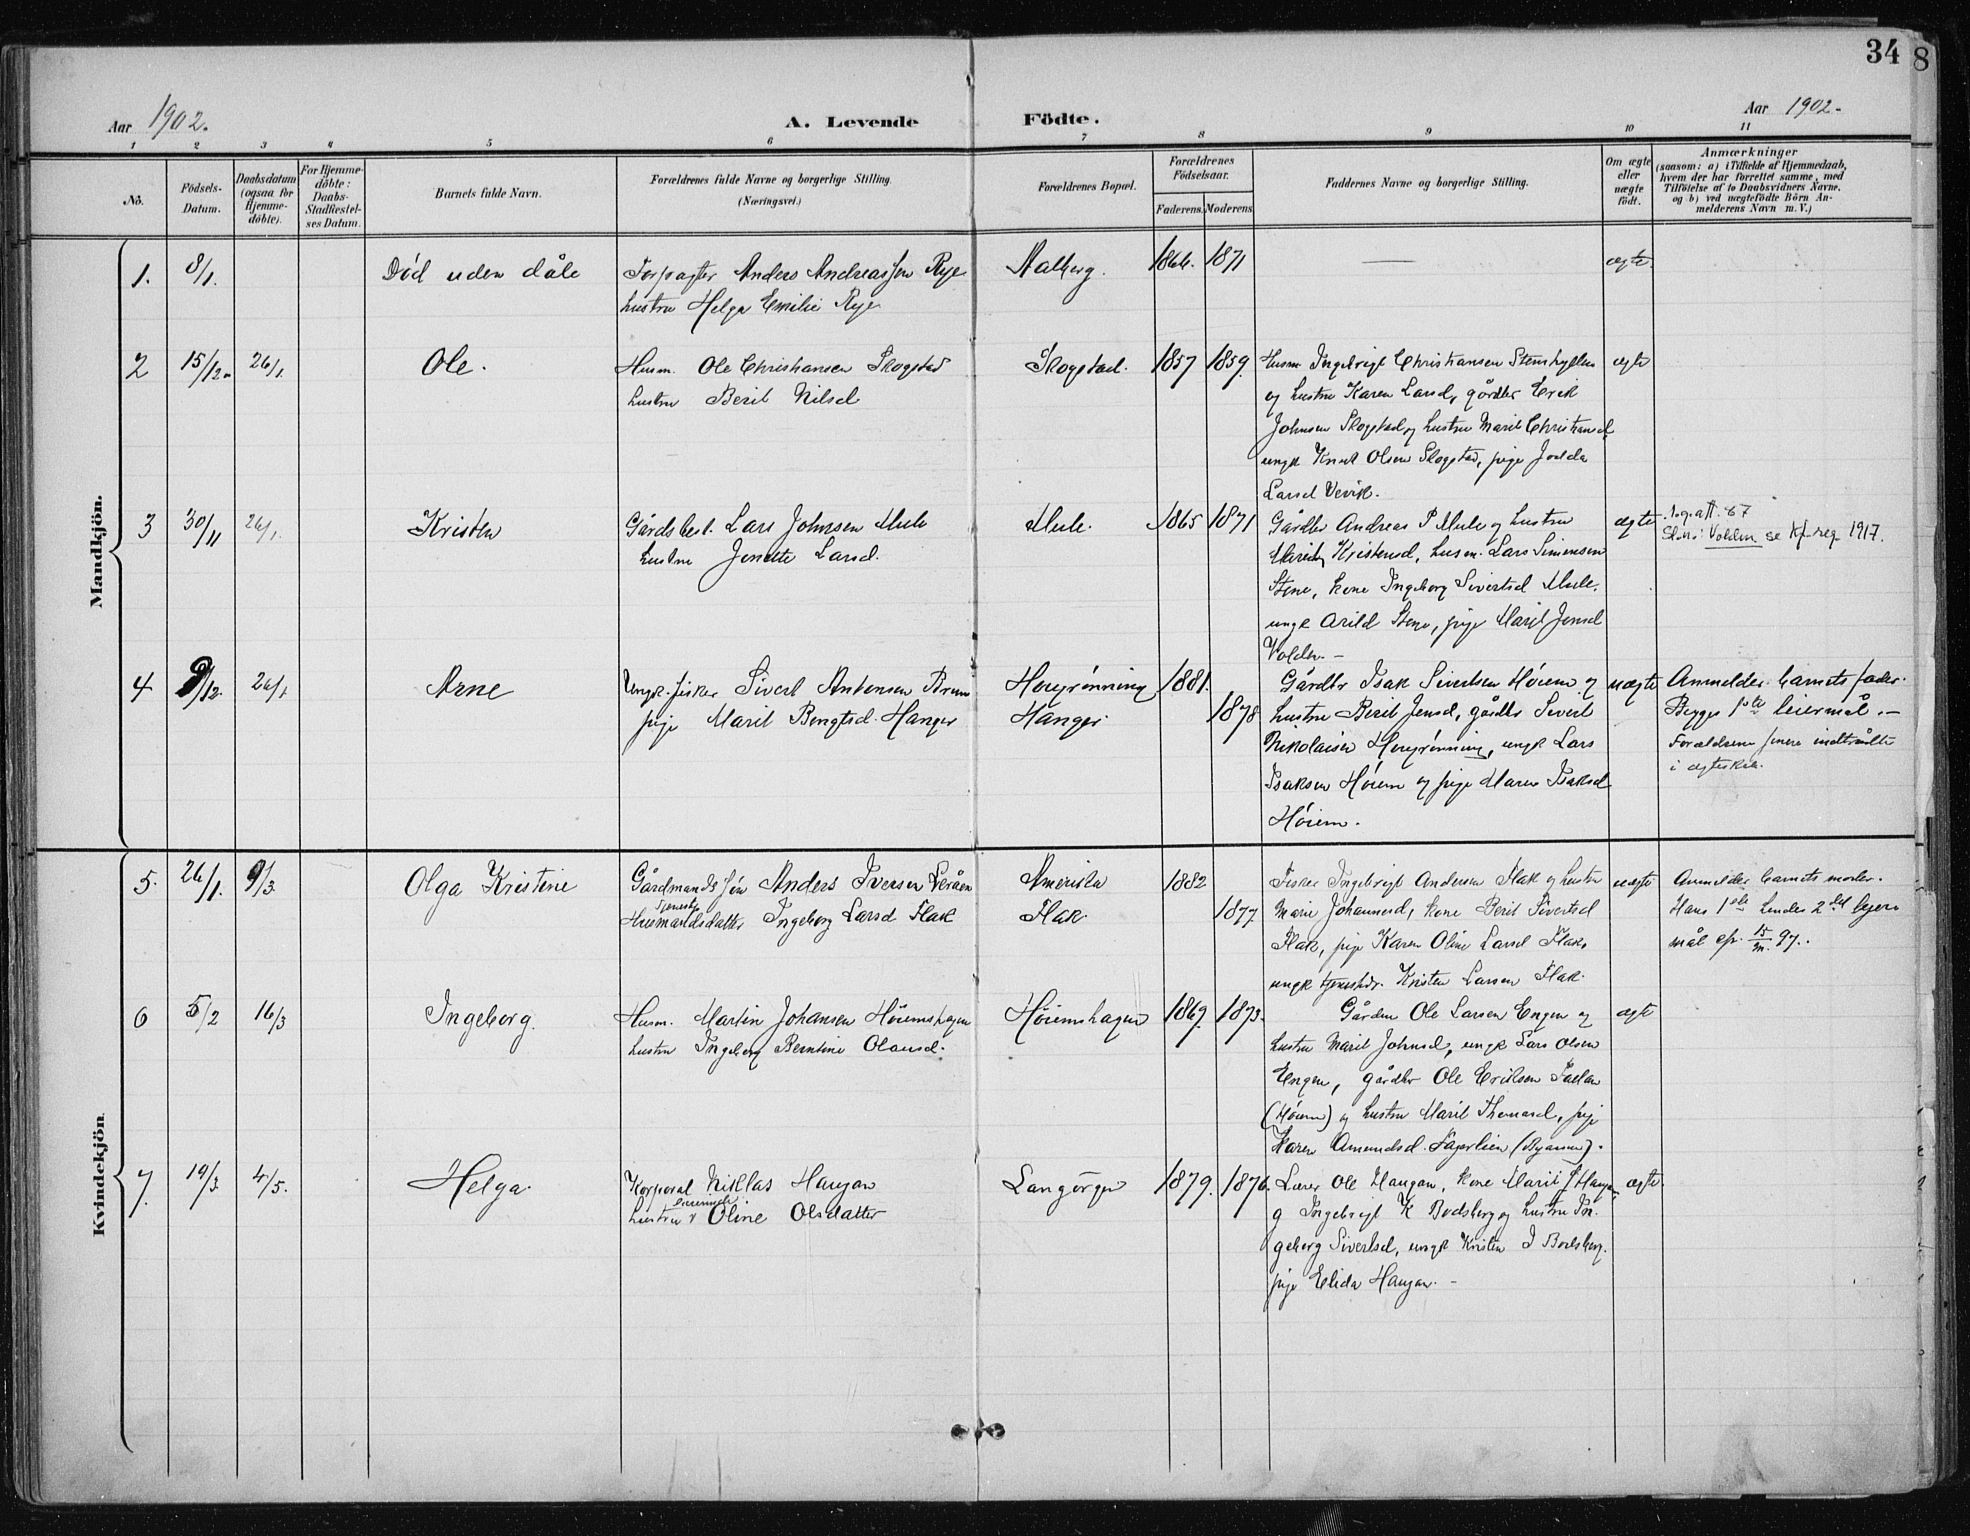 34
8
Aar 1902.
A. Levende Födte.
Aar 1902.
1 2 3 4 5 6 7 8 9 10 11
No.
Födsels-
Datum.
Daabsdatum
(ogsaa for
Hjemme-
döbte).
For Hjemme-
döbte:
Daabs-
Stadfæstel-
ses Datum.
Barnets fulde Navn.
Forældrenes fulde Navne og borgerlige Stilling.
(Næringsvei.)
Forældrenes Bopæl.
Forældrenes
Födselsaar.
Faderens.
Moderens.
Faddernes Navne og borgerlige Stilling.
Om ægte
eller
uægte
födt.
Anmærkninger
(saasom: a) i Tilfælde af Hjemmedaab,
hvem der har forrettet samme, med
Tilföielse af to Daabsvidners Navne.
og b) ved uægtefödte Börn An-
melderens Navn m. V.)
Mandkjön.
1. 8/1. Död uden dåb
Forpagter Anders Andreassen Rye
hustru Helga Emilie Rye
Aalberg. 1866. 1871 — ægte
2 15/12. 26/1. Ole.
Husm. Ole Christiansen Skogstad
hustru Berit Nilsd
Skogstad. 1857 1859.
Husm Ingebrigt Christiansen Stenshyllen
og hustru Karen Larsd, gårdbr Erik
Johnsen Skogstad og hustru Marit Christiansd,
ungk Knut Olsen Skogstad, pige
Larsd Vevik.
ægte
3 30/11 26/1. Kristen
Gårdsbest. Lars Johnsen Mule
hustru Jonette Larsd.
Mule. 1865 1871
Gårdbr Andreas P Mule og hustru
Kristensd, husm. Lars Simensen
Stene, kone Ingeborg Sivertsd Mule,
ungk Arild Stene, pige Marit Jensd
Volden. –
ægte
67
Volden se 1917.
4 9/12. 26/1 Arne
Ungk. fisker Sivert Antonsen Brun
pige Marit Bengtsd. Hanger
Høugrønning
Hanger. 1881. 1878
Gårdbr Isak Sivertsen Høiem og
hustru Berit Jensd, gårdbr Sivert
Nikolaisen Høugrønning, ungk Lars
Isaksen Høiem og pige Maren Isaksd
Høiem.
uægte
Anmelder barnets fader.
Begges 1ste leiermål. –
Forældrene senere indtrådte
i ægteskab.
Kvindekjön
5. 26/1. 9/3. Olga Kristine
Gårdmands søn Anders Iversen Leråen
Tjeneste
Husmandsdatter Ingeborg Larsd Flak
Amerika
Flak. 1882 1877
Fisker Ingebrigt Andersen Flak og hustru
Marie Johannesd, kone Berit Sivertsd
Flak, pige Karen Oline Larsd Flak,
ungk tjenestdr. Kristen Larsen Flak.
uægte
Anmelder barnets moder.
Hans 1ste hendes 2det leier-
mål 97.
6 5/2 16/3 Ingeborg.
Husm. Martin Johansen Høiemshagen
hustru Ingeborg Berntine Olausd.
Høiemshagen 1869. 1873.
Gårdm Ole Larsen Engen og
hustru Marit Johnsd, ungk Lars Olsen
Engen, gårdbr Ole Eriksen
(Høiem) og hustru Marit Thomasd, pige
Karen Amundsd. Fagerlien (Byaasen).
ægte
7. 19/3. 4/5. Helga.
Korporal Niklas Haugan
hustru Oline Olsdatter
Langörgen 1879. 1876.
Lærer Ole Haugan, kone Marit Haugan
og Ingebrigt K Bodsberg og hustru In-
geborg Sivertsd, ungk Kristen I Bodsberg.
pige Elida Haugan. –
ægte